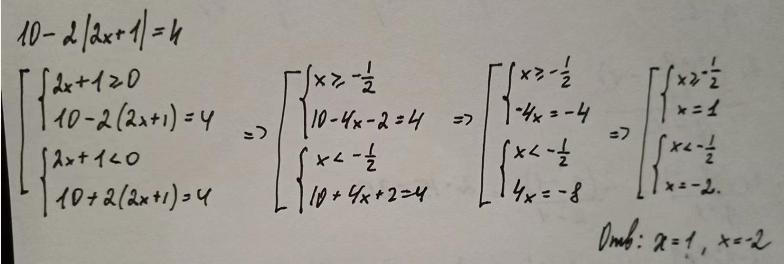 10-2|2x+1|=4
[ { 2x+1≥0
10-2(2x+1)=4
{ 2x+1<0
10+2(2x+1)=4
=> [ { x≥-1/2
10-4x-2=4
{ x<-1/2
10+4x+2=4
=> [ { x≥-1/2
-4x=-4
{ x<-1/2
4x=-8
=> [ { x≥-1/2
x=1
{ x<-1/2
x=-2.
Отв: x=1, x=-2